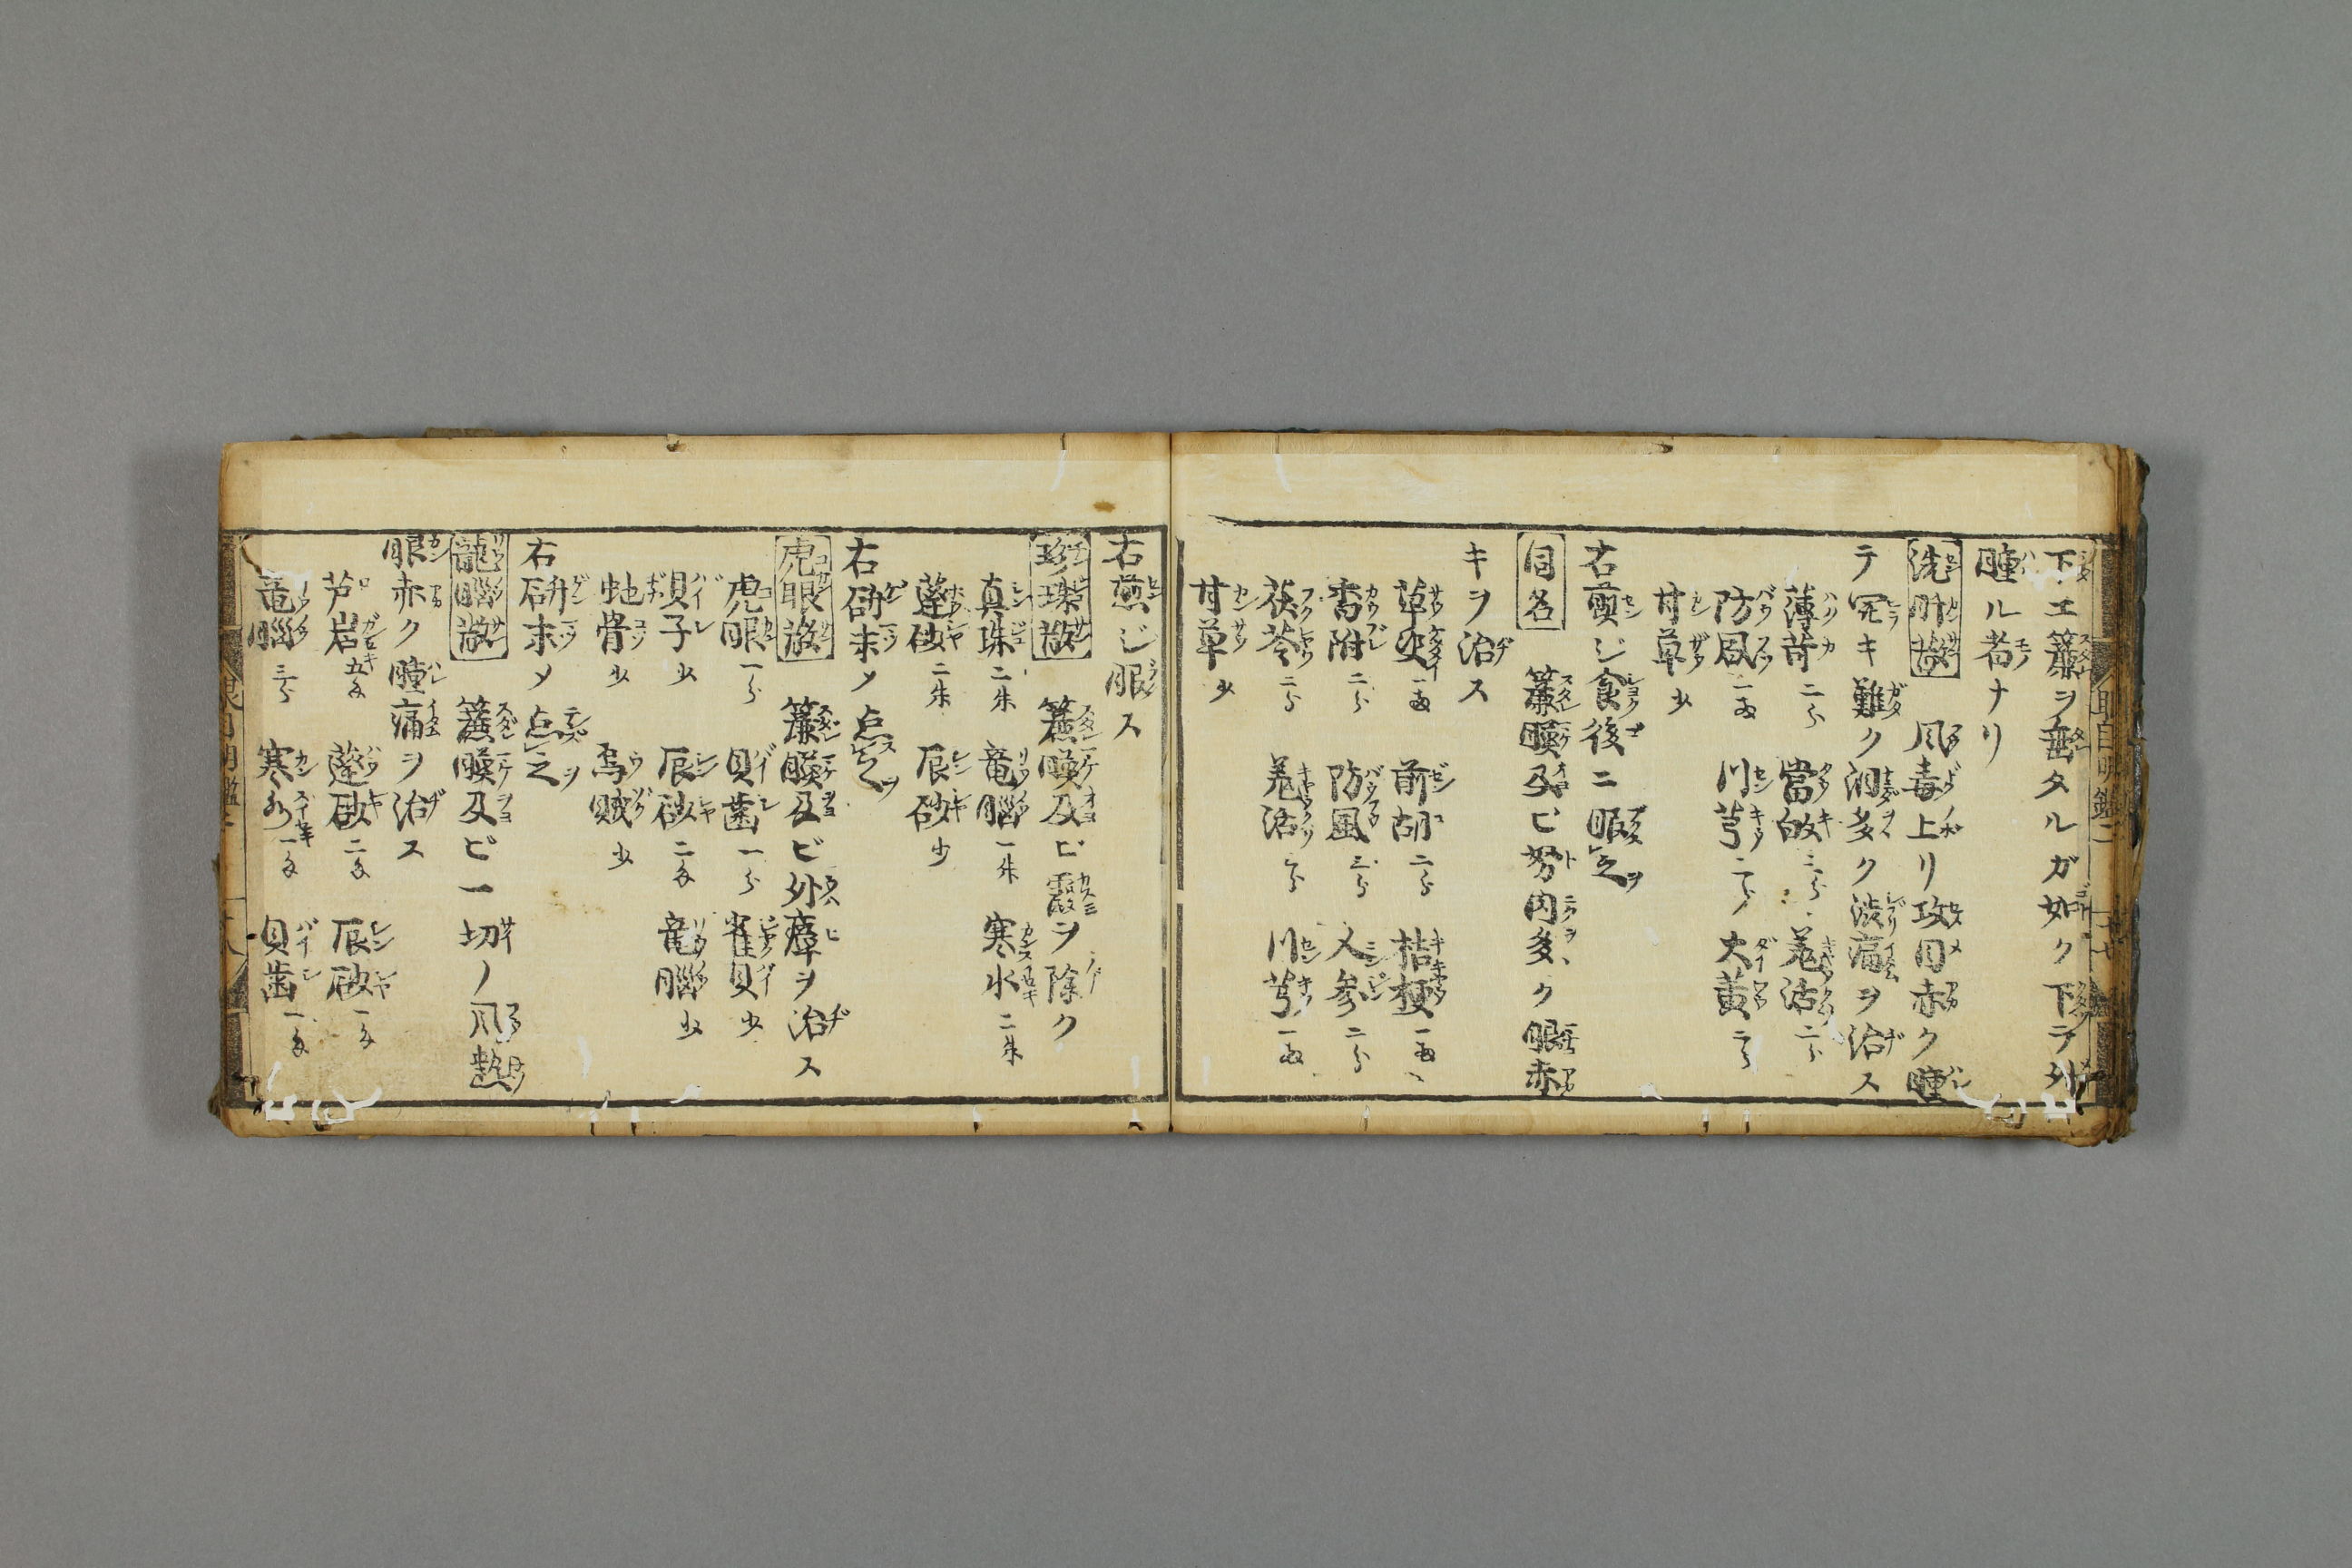 下エ簾ヲ垂タルガ如ク下ヲ外
腫ル者ナリ
洗肝散 風毒上リ攻目赤ク腫
テ開キ難ク泪多ク渋痛ヲ治ス
薄苛二分 當皈三分 羌活二分
防風一両 川芎二分 大黄二分
甘草少
右煎ジ食後ニ服之ヲ
同名 簾膜及ビ努肉多ク眼赤
キヲ治ス
草決一両 前胡二分 桔梗一両
香附二分 防風三分 人参二分
茯苓二分 羌活二分 川芎一両
甘草少
右煎ジ服ス
珍珠散 簾膜及ビ霞ヲ除ク
真珠二朱 竜脳一朱 寒水二朱
蓬砂二朱 辰砂少
右研末メ点之ヲ
虎眼散 簾膜及ビ外障ヲ治ス
虎眼一分 貝歯一分 雀貝少
貝子少 辰砂二匁 龍脳少
虵骨少 烏賊少
右研末メ点之ヲ
龍脳散 簾膜及ビ一切ノ風熱
眼赤ク腫痛ヲ治ス
芦岩五匁 蓬砂二匁 辰砂一匁
竜脳三分 寒水一匁 貝歯一匁